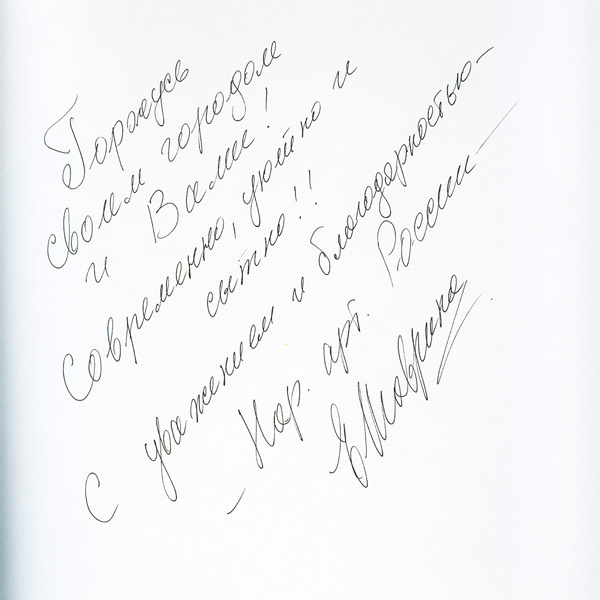 Горжусь
своим городом
и Вами!
Современно, уютно и
сытно!!
С уважением и благодарностью -
- Нар. арт. России -